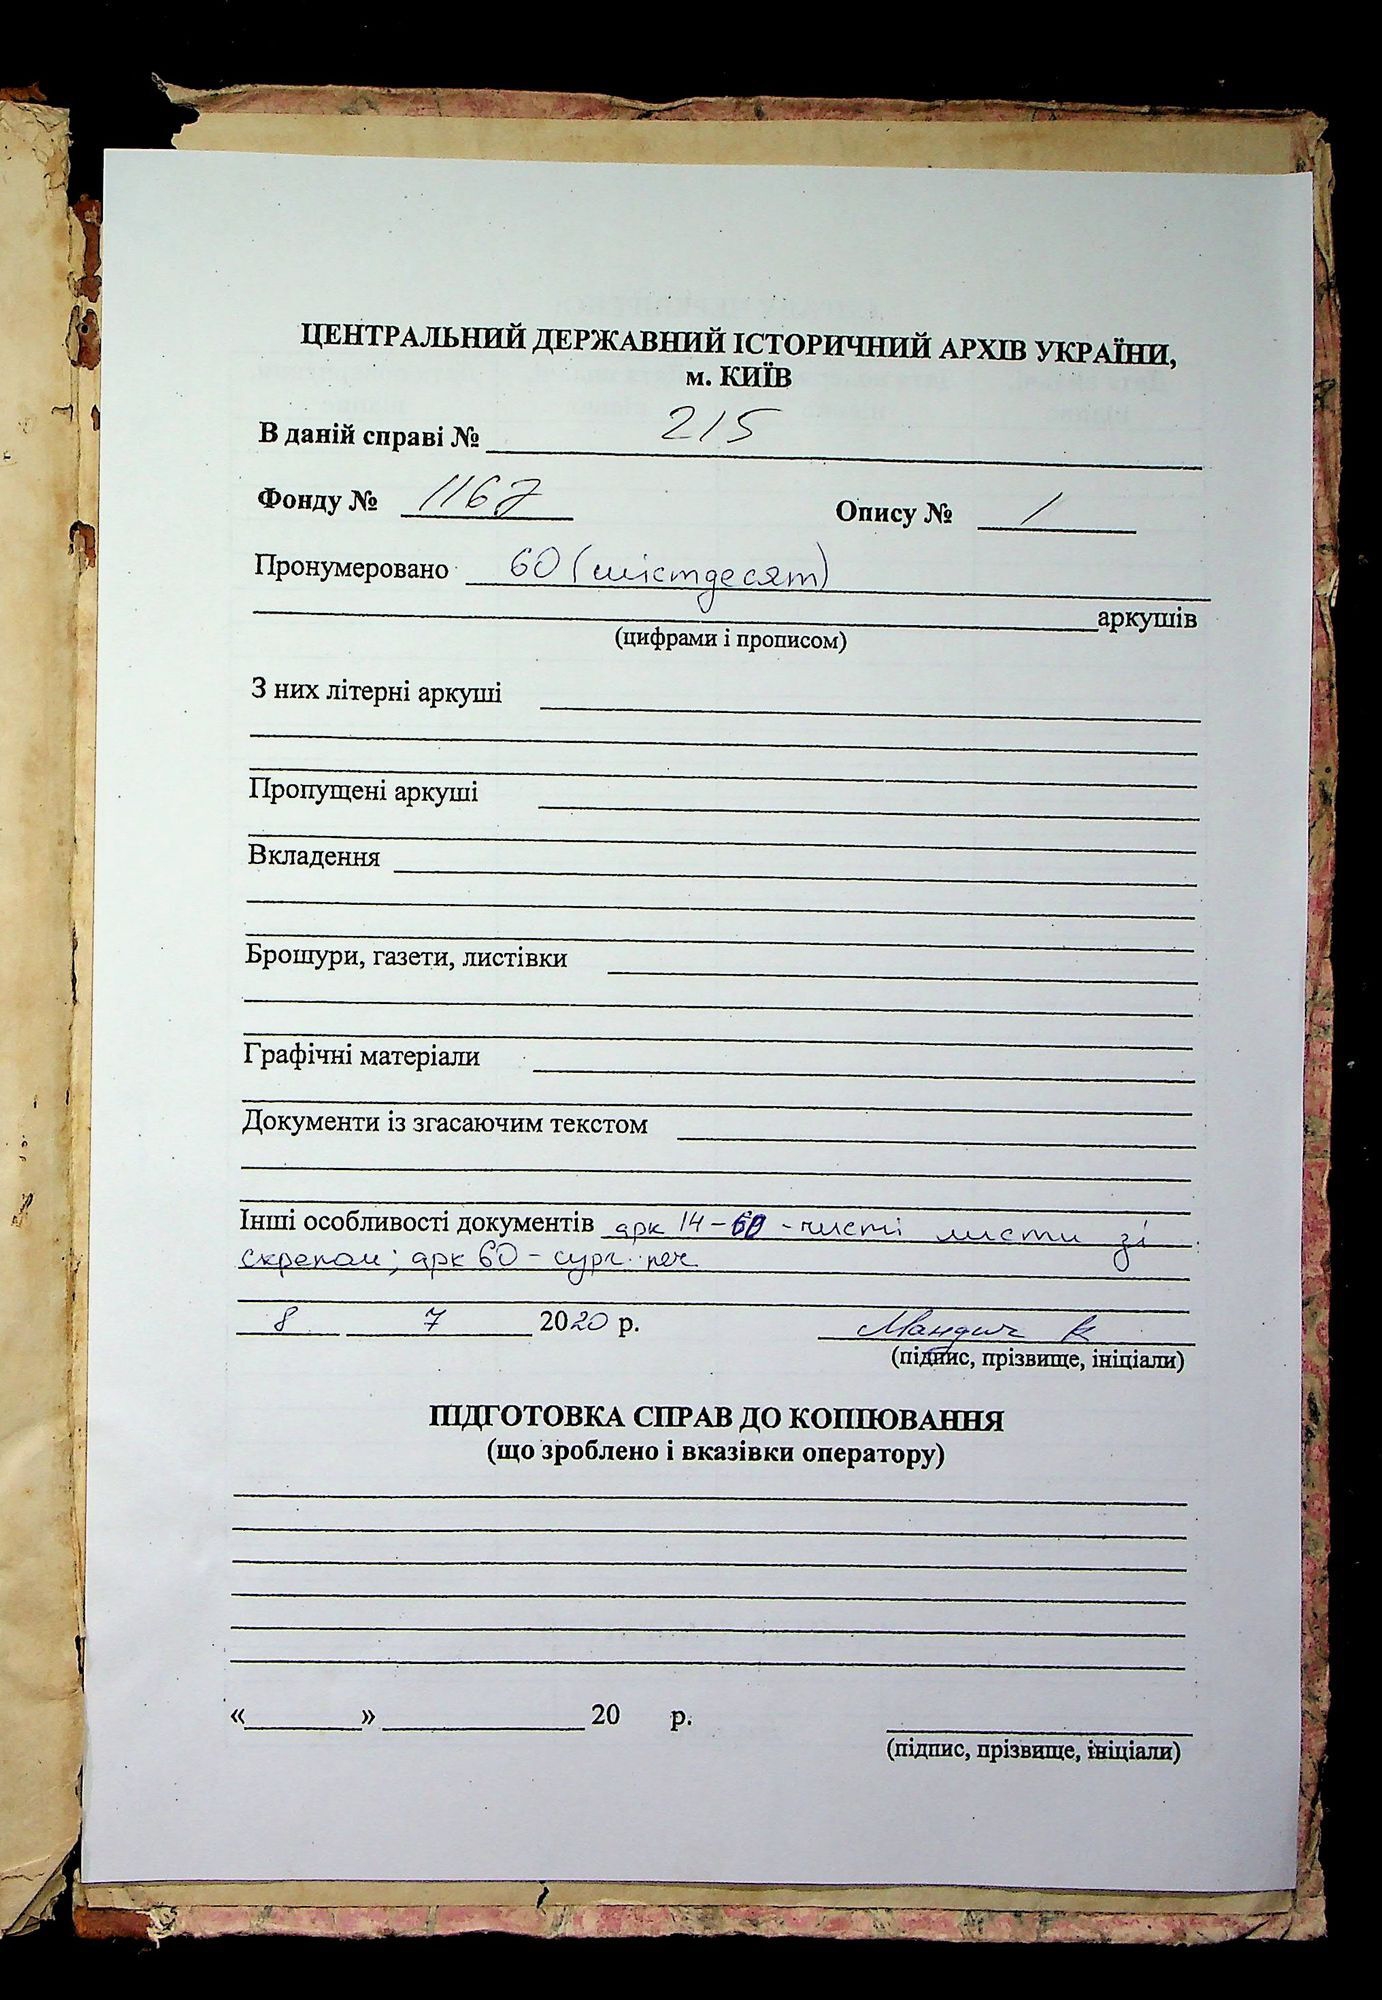 ЦЕНТРАЛЬНИЙ ДЕРЖАВНИЙ ІСТОРИЧНИЙ АРХІВ УКРАЇНИ,
м. КИЇВ
В даній справі № 215
Фонду № 1167 Опису № 1
Пронумеровано 60 (шістдесят)
аркушів
(цифрами і прописом)
З них літерні аркуші
Пропущені аркуші
Вкладення
Брошури, газети, листівки
Графічні матеріали
Документи із згасаючим текстом
Інші особливості документів арк 14-60 - чисті листи зі
скрепом; арк 60 - сург. печ.
8 7 2020 р. Мандич К
(підпис, прізвище, ініціали)
ПІДГОТОВКА СПРАВ ДО КОПІЮВАННЯ
(що зроблено і вказівки оператору)
«________» ______________ 20 р.
(підпис, прізвище, ініціали)